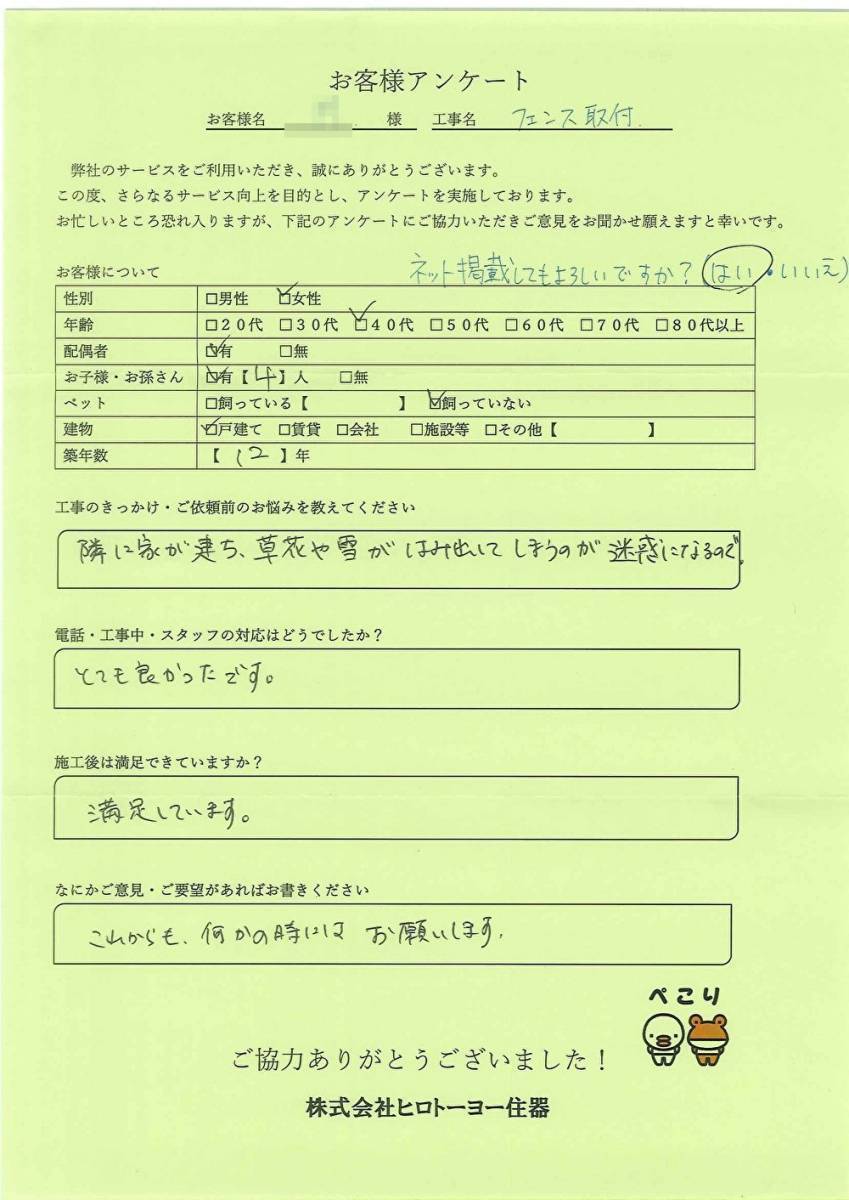 お客様アンケート
お客様名 様 工事名 フェンス取付
弊社のサービスをご利用いただき、誠にありがとうございます。
この度、さらなるサービス向上を目的とし、アンケートを実施しております。
お忙しいところ恐れ入りますが、下記のアンケートにご協力いただきご意見をお聞かせ願えますと幸いです。
ネット掲載してもよろしいですか？(はい・いいえ)
お客様について
性別 □男性 ☑女性
年齢 □20代 □30代 ☑40代 □50代 □60代 □70代 □80代以上
配偶者 ☑有 □無
お子様・お孫さん ☑有【4】人 □無
ペット □飼っている【 】 ☑飼っていない
建物 ☑戸建て □賃貸 □会社 □施設等 □その他【 】
築年数 【12】年
工事のきっかけ・ご依頼前のお悩みを教えてください
隣に家が建ち、草花や雪がはみ出してしまうのが迷惑になるので。
電話・工事中・スタッフの対応はどうでしたか？
とても良かったです。
施工後は満足できていますか？
満足しています。
なにかご意見・ご要望があればお書きください
これからも、何かの時にはお願いします。
ぺこり
ご協力ありがとうございました！
株式会社ヒロトーヨー住器